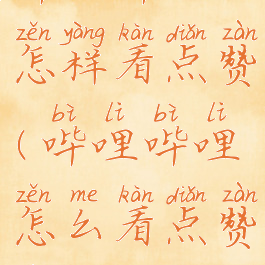 zěn yàng kàn diǎn zàn
怎样看点赞
bì lì bì lì
(哔哩哔哩
zěn me kàn diǎn zàn
怎么看点赞